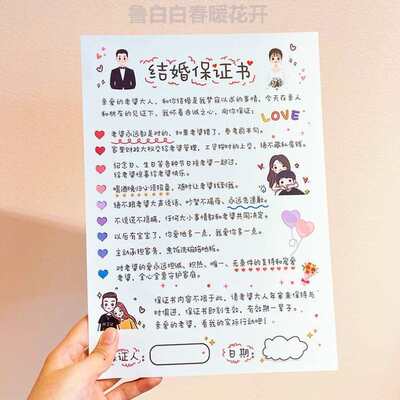 鲁白白春暖花开
结婚保证书
亲爱的老婆大人，和你结婚是我梦寐以求的事情，今天在亲人
和朋友的见证下，我怀着赤诚之心，向你保证：
LOVE
老婆永远都是对的，如果老婆错了，参考前半句。
家里财政大权交给老婆管理，工资按时的上交，绝不藏私房钱。
纪念日、生日等各种节日陪老婆一起过，
给老婆惊喜给老婆快乐。
喝酒晚归必须报备，随时让老婆找到我。
绝不跟老婆大声说话，吵架不隔夜，永远先道歉。
不说谎不隐瞒，任何大小事情都和老婆共同决定。
以后有宝宝了，你爱他多一点，我爱你多一点。
主动承担家务，煮饭洗碗拖地板。
对老婆的爱永远坦诚、炽热、唯一，无条件的支持和宠爱
老婆，全心全意守护家庭。
保证书内容不限于此，请老婆大人年审来保持与
时俱进，保证书即刻生效，有效期一辈子。
亲爱的老婆，看我的实际行动吧！
证人：
日期：